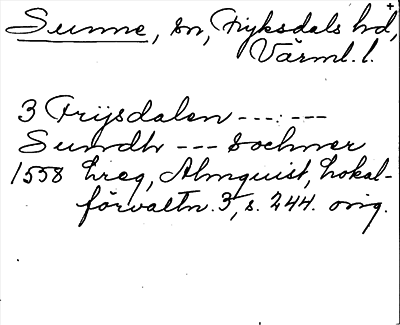 Sunne, sn, Fryksdals hd,
Värml. l.
3 Frijsdalen --- : ---
Sundh --- sochner
1558 hreg, Almquist, Lokal-
förvaltn. 3, s. 244. orig.